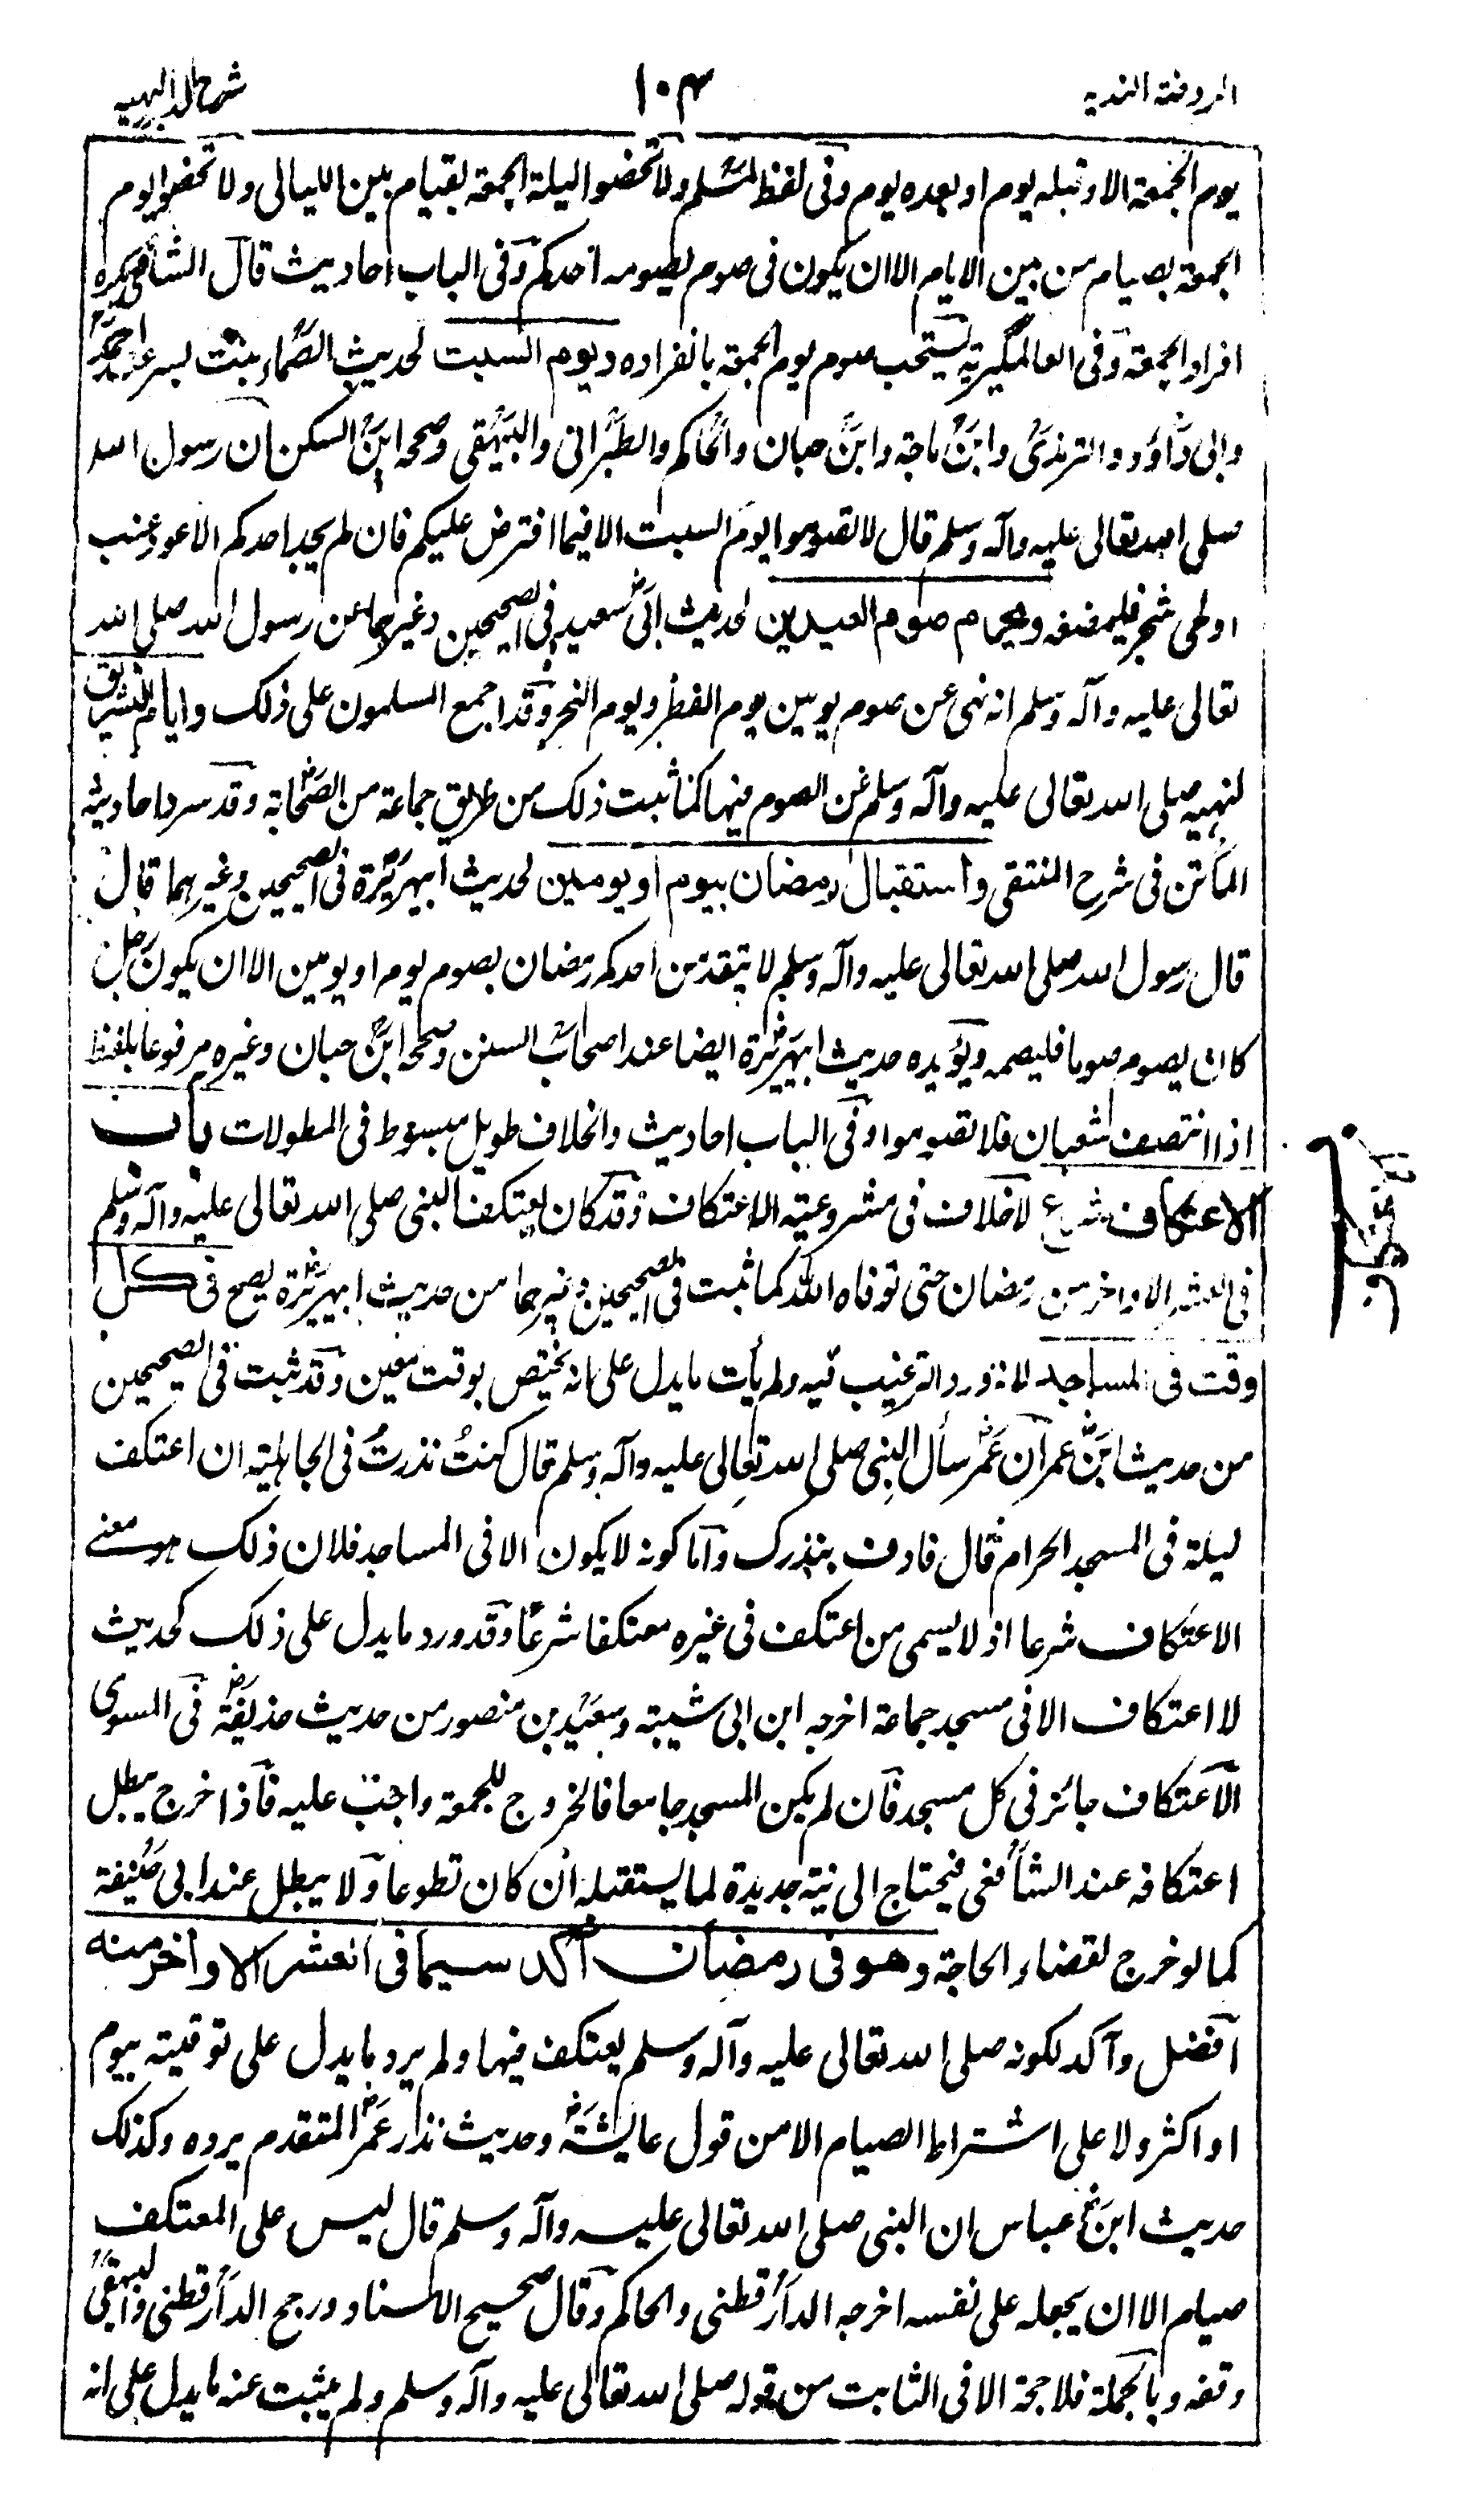 الروضة الندية
١٠٤
شرح الدرر البهية
يوم الجمعة الا وقبله يوم او بعده يوم وفى لفظ لمسلم ولا تخصوا ليلة الجمعة بقيام بين الليالى ولا تخصوا يوم
الجمعة بصيام من بين الايام الا ان يكون فى صوم يصومه احدكم وفى الباب احاديث قال الشافعى يكره
افراد الجمعة وفى العالمگيرية يستحب صوم يوم الجمعة بانفراده ويوم السبت لحديث الصماء بنت بسر عند احمد
وابى داؤد والترمذى وابن ماجة وابن حبان والحاكم والطبرانى والبيهقى وصححه ابن السكن ان رسول الله
صلى الله تعالى عليه وآله وسلم قال لا تصوموا يوم السبت الا فيما افترض عليكم فان لم يجد احدكم الا عود عنب
او لحى شجر فليمضغه ويحرم صوم العيدين لحديث ابى سعيد فى الصحيحين وغيرهما عن رسول الله صلى الله
تعالى عليه وآله وسلم انه نهى عن صوم يومين يوم الفطر ويوم النحر وقد اجمع المسلمون على ذلك وايام التشريق
لنهيه صلى الله تعالى عليه وآله وسلم عن الصوم فيها كما ثبت ذلك من طريق جماعة من الصحابة وقد سرد احاديثه
الماتن فى شرح المنتقى واستقبال رمضان بيوم او يومين لحديث ابيهريرة فى الصحيحين وغيرهما قال
قال رسول الله صلى الله تعالى عليه وآله وسلم لا يتقدمن احدكم رمضان بصوم يوم او يومين الا ان يكون رجل
كان يصوم صوما فليصمه ويؤيده حديث ابيهريرة ايضا عند اصحاب السنن وصححه ابن حبان وغيره مرفوعا بلفظ
اذا انتصف شعبان فلا تصوموا وفى الباب احاديث والخلاف طويل مبسوط فى المطولات باب
الاعتكاف شرع لاخلاف فى مشروعية الاعتكاف وقد كان يعتكف النبى صلى الله تعالى عليه وآله وسلم
فى العشر الاواخر من رمضان حتى توفاه الله كما ثبت فى الصحيحين وغيرهما من حديث ابيهريرة يصح فى كل
وقت فى المساجد لانه ورد الترغيب فيه ولم يأت ما يدل على انه يختص بوقت معين وقد ثبت فى الصحيحين
من حديث ابن عمر ان عمر سأل النبى صلى الله تعالى عليه وآله وسلم قال كنتُ نذرتُ فى الجاهلية ان اعتكف
ليلة فى المسجد الحرام قال فاوف بنذرك واما كونه لا يكون الا فى المساجد فلان ذلك هو معنے
الاعتكاف شرعا اذ لا يسمى من اعتكف فى غيره معتكفا شرعًا وقد ورد ما يدل على ذلك كحديث
لا اعتكاف الا فى مسجد جماعة اخرجه ابن ابى شيبة وسعيد بن منصور من حديث حذيفة فى المسوى
الاعتكاف جائز فى كل مسجد فان لم يكن المسجد جامعا فالخروج للجمعة واجب عليه فاذا خرج يبطل
اعتكافه عند الشافعى فيحتاج الى نية جديدة لما يستقبله ان كان تطوعا ولا يبطل عند ابى حنيفة
كما لو خرج لقضاء الحاجة وهو فى رمضان آكد سيما فى العشر الاواخر منه
افضل وآكد لكونه صلى الله تعالى عليه وآله وسلم يعتكف فيها ولم يرد ما يدل على توقيته بيوم
او اكثر ولا على اشتراط الصيام الا من قول عائشة وحديث نذر عمر المتقدم يرده وكذلك
حديث ابن عباس ان النبى صلى الله تعالى عليه وآله وسلم قال ليس على المعتكف
صيام الا ان يجعله على نفسه اخرجه الدارقطنى والحاكم وقال صحيح الاسناد ورجح الدارقطنى والبيهقى
وقفه وبالجملة فلا حجة الا فى الثابت من قوله صلى الله تعالى عليه وآله وسلم ولم يثبت عنه ما يدل على انه